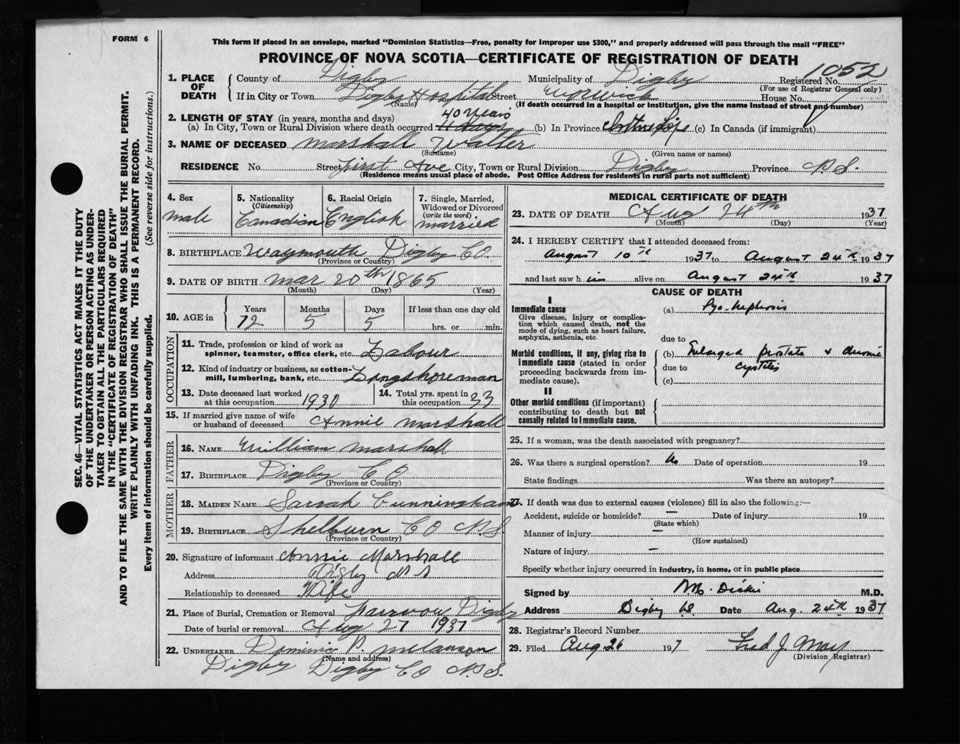 FORM 6
This form if placed in an envelope, marked "Dominion Statistics—Free, penalty for improper use $300," and properly addressed will pass through the mail "FREE"
PROVINCE OF NOVA SCOTIA—CERTIFICATE OF REGISTRATION OF DEATH
1052
1. PLACE OF DEATH
County of Digby Municipality of Digby Registered No.
(For use of Registrar General only)
If in City or Town Digby Hospital Street Warwick House No.
(Name) (If death occurred in a hospital or institution, give the name instead of street and number)
40 years
2. LENGTH OF STAY (in years, months and days)
(a) In City, Town or Rural Division where death occurred (b) In Province Entire Life (c) In Canada (if immigrant)
3. NAME OF DECEASED Marshall Walter
(Surname) (Given name or names)
RESIDENCE No. Street First Ave City, Town or Rural Division Digby Province N.S.
(Residence means usual place of abode. Post Office Address for residents in rural parts not sufficient)
4. Sex male
5. Nationality (Citizenship) Canadian
6. Racial Origin English
7. Single, Married, Widowed or Divorced (write the word) married
8. BIRTHPLACE Waymouth Digby CO.
(Province or Country)
9. DATE OF BIRTH Mar 20th 1865
(Month) (Day) (Year)
10. AGE in Years 72 Months 5 Days 5 If less than one day old hrs. or min.
OCCUPATION
11. Trade, profession or kind of work as spinner, teamster, office clerk, etc. Labour
12. Kind of industry or business, as cotton-mill, lumbering, bank, etc. Longshoreman
13. Date deceased last worked at this occupation 1930
14. Total yrs. spent in this occupation 23
15. If married give name of wife or husband of deceased Annie Marshall
FATHER
16. NAME William Marshall
17. BIRTHPLACE Digby CO
(Province or Country)
MOTHER
18. MAIDEN NAME Sarah Cunningham
19. BIRTHPLACE Shelburn CO N.S.
(Province or Country)
20. Signature of informant Annie Marshall
Address Digby N S
Relationship to deceased Wife
21. Place of Burial, Cremation or Removal Digby
Date of burial or removal Aug 27 1937
22. UNDERTAKER Dominic P. Melanson
(Name and address)
Digby Digby CO N.S.
MEDICAL CERTIFICATE OF DEATH
23. DATE OF DEATH Aug 24th 1937
(Month) (Day)
24. I HEREBY CERTIFY that I attended deceased from:
August 10th 1937 to August 24th 1937
and last saw him alive on August 24th 1937
CAUSE OF DEATH
I
Immediate cause
Give disease, injury or complication which caused death, not the mode of dying, such as heart failure, asphyxia, asthenia, etc.
(a) Pyo-nephrosis
due to
Morbid conditions, if any, giving rise to immediate cause (stated in order proceeding backwards from immediate cause).
(b) Enlarged prostate & chronic
due to cystitis
(c)
II
Other morbid conditions (if important) contributing to death but not causally related to immediate cause.
25. If a woman, was the death associated with pregnancy?
26. Was there a surgical operation? No Date of operation 19
State findings Was there an autopsy?
27. If death was due to external causes (violence) fill in also the following:—
Accident, suicide or homicide? — Date of injury 19
(State which)
Manner of injury
(How sustained)
Nature of injury —
Specify whether injury occurred in industry, in home, or in public place
Signed by M.D.
Address Digby Date Aug. 24th 1937
28. Registrar's Record Number
29. Filed Aug 26 197 Fred J May
(Division Registrar)
SEC. 46—VITAL STATISTICS ACT MAKES IT THE DUTY
OF THE UNDERTAKER OR PERSON ACTING AS UNDER-
TAKER TO OBTAIN ALL THE PARTICULARS REQUIRED
IN THE "CERTIFICATE OF REGISTRATION OF DEATH"
AND TO FILE THE SAME WITH THE DIVISION REGISTRAR WHO SHALL ISSUE THE BURIAL PERMIT.
WRITE PLAINLY WITH UNFADING INK. THIS IS A PERMANENT RECORD.
Every item of information should be carefully supplied. (See reverse side for instructions.)